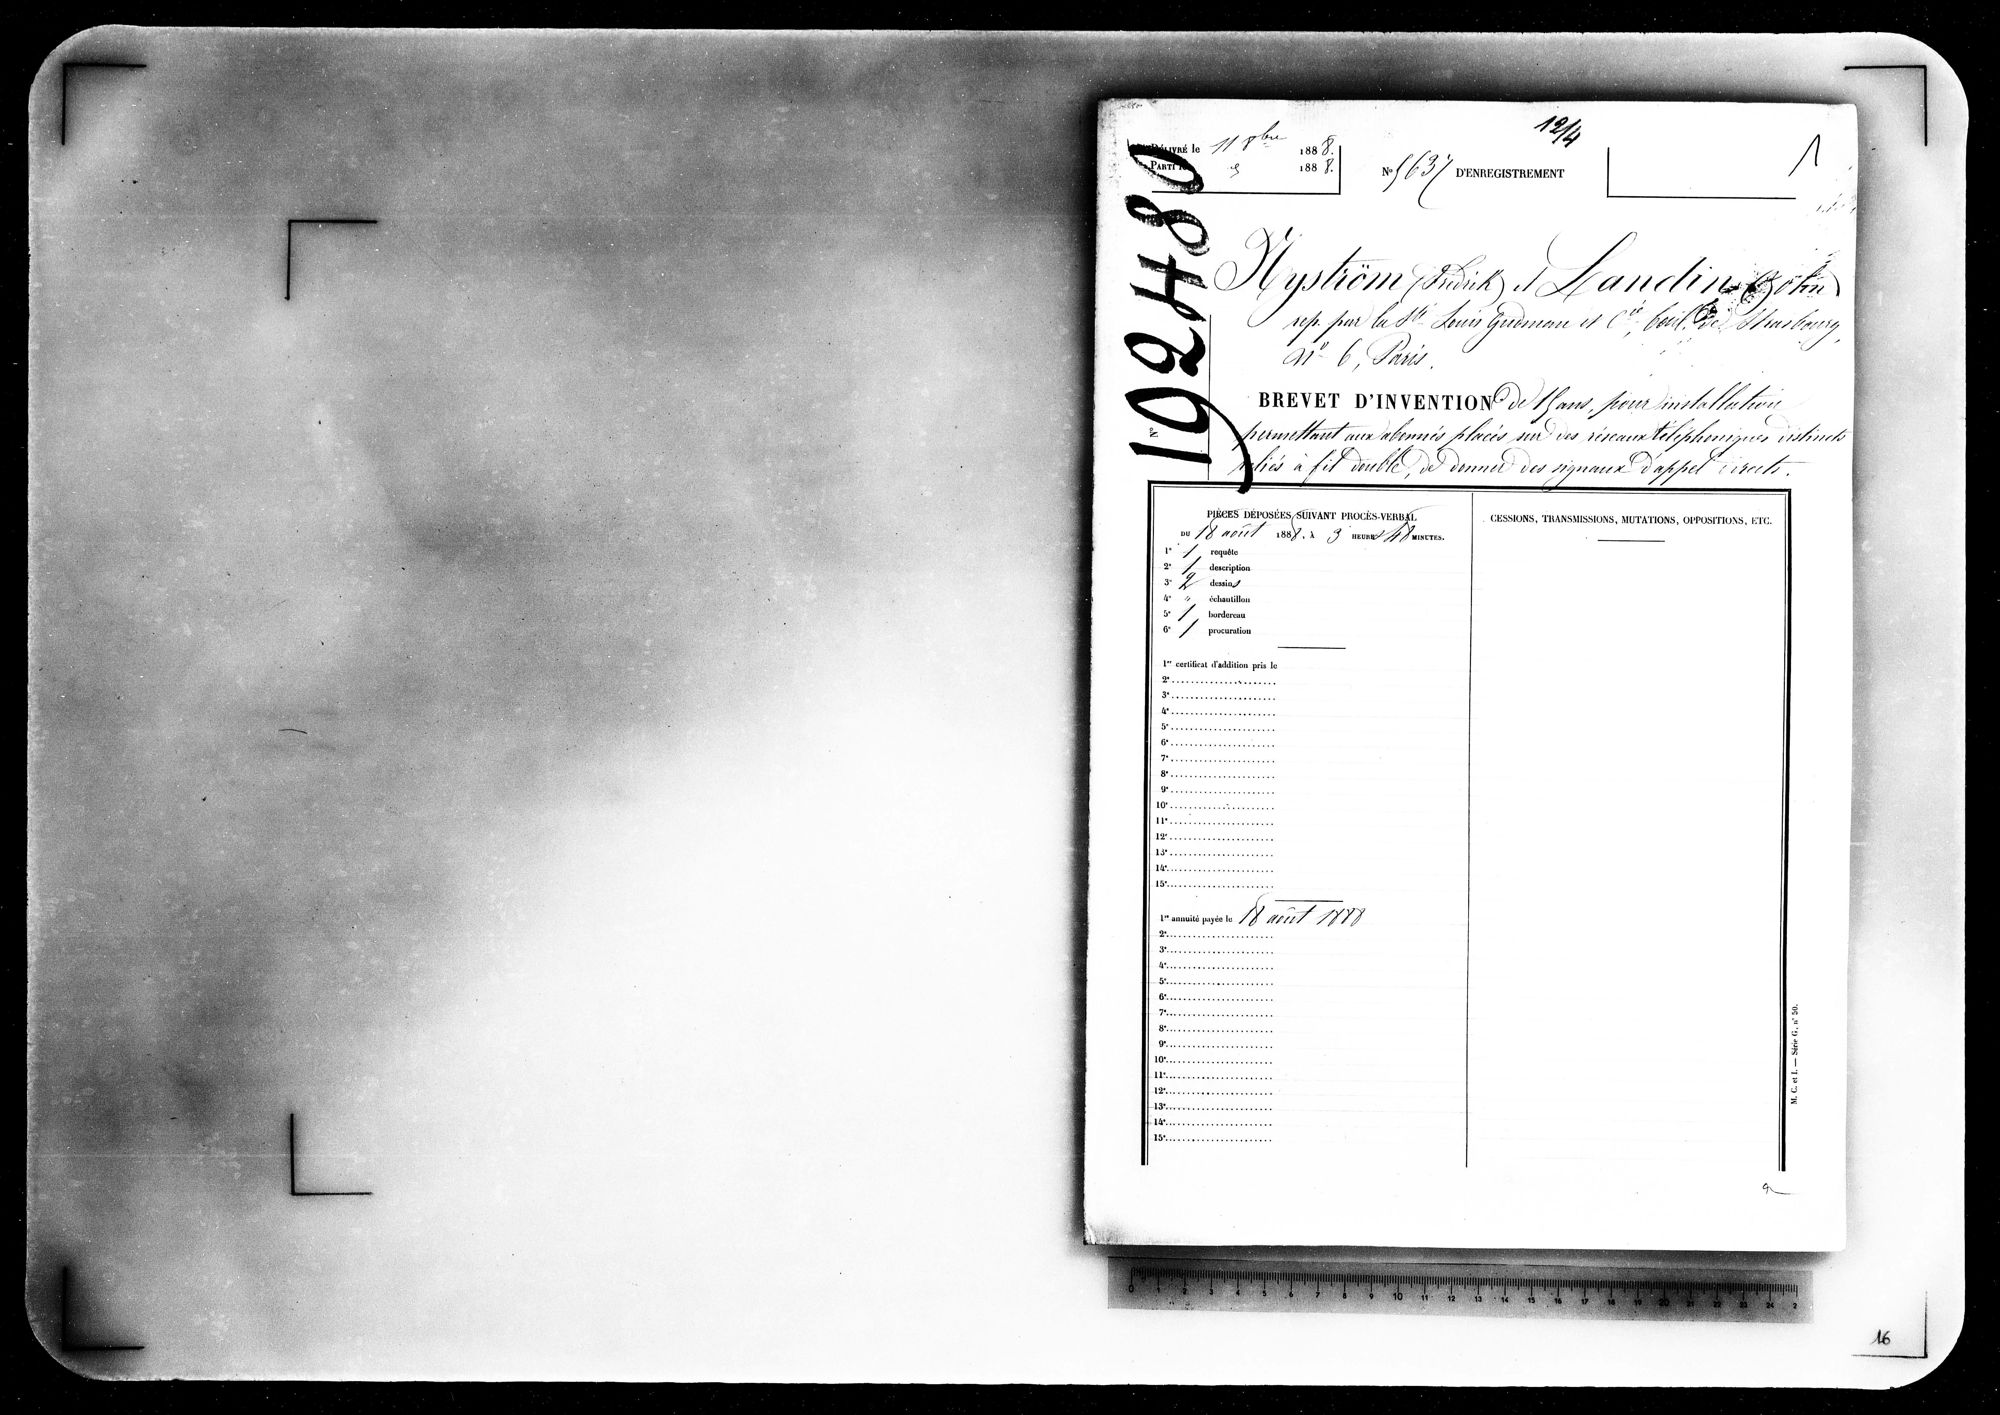 DÉLIVRÉ le 11 8bre 1888.
PARTI le 1888.
N° 5637 D'ENREGISTREMENT
12/4
1
N° 192480
Nyström (Fridrik) et Landin (John)
rep. par la Sté Louis Gudman et Cie, boul. de Strasbourg,
N° 6, Paris.
BREVET D'INVENTION de 15 ans, pour installation
permettant aux abonnés placés sur des réseaux téléphoniques distincts
reliés à fil double, de donner des signaux d'appel directs.
PIÈCES DÉPOSÉES SUIVANT PROCÈS-VERBAL
DU 18 août 1888. À 3 HEURES 48 MINUTES.
1° 1 requête
2° 1 description
3° 2 dessins
4° " échantillon
5° 1 bordereau
6° 1 procuration
1er certificat d'addition pris le
2e
3e
4e
5e
6e
7e
8e
9e
10e
11e
12e
13e
14e
15e
1re annuité payée le 18 août 1888
2e
3e
4e
5e
6e
7e
8e
9e
10e
11e
12e
13e
14e
15e
CESSIONS, TRANSMISSIONS, MUTATIONS, OPPOSITIONS, ETC.
M. C. et I. — Série G, n° 50.
0 1 2 3 4 5 6 7 8 9 10 11 12 13 14 15 16 17 18 19 20 21 22 23 24 2
16